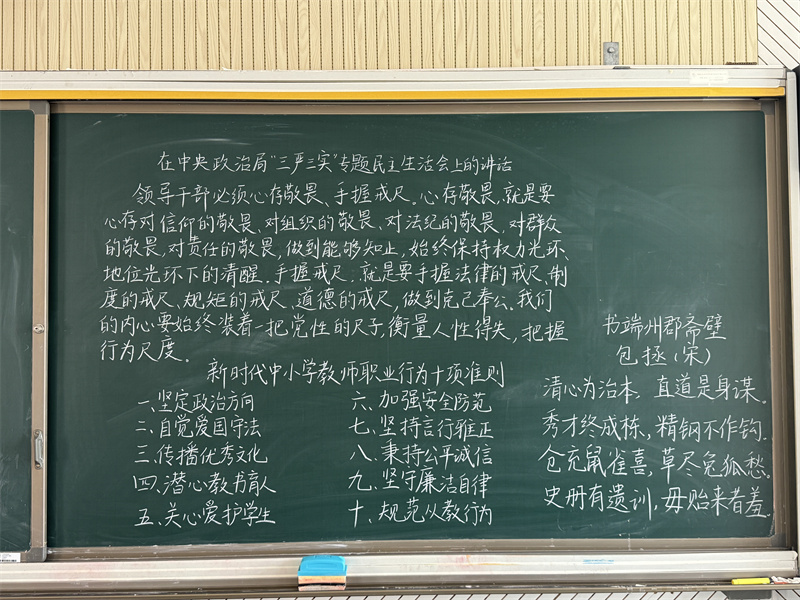 在中央政治局“三严三实”专题民主生活会上的讲话
领导干部必须心存敬畏、手握戒尺。心存敬畏,就是要
心存对信仰的敬畏、对组织的敬畏、对法纪的敬畏,对群众
的敬畏,对责任的敬畏,做到能够知止,始终保持权力光环、
地位光环下的清醒。手握戒尺,就是要手握法律的戒尺、制
度的戒尺、规矩的戒尺、道德的戒尺,做到克己奉公。我们
的内心要始终装着一把党性的尺子,衡量人性得失,把握
行为尺度。
新时代中小学教师职业行为十项准则
一、坚定政治方向
二、自觉爱国守法
三、传播优秀文化
四、潜心教书育人
五、关心爱护学生
六、加强安全防范
七、坚持言行雅正
八、秉持公平诚信
九、坚守廉洁自律
十、规范从教行为
书端州郡斋壁
包拯(宋)
清心为治本,直道是身谋。
秀才终成栋,精钢不作钩。
仓充鼠雀喜,草尽兔狐愁。
史册有遗训,毋贻来者羞。